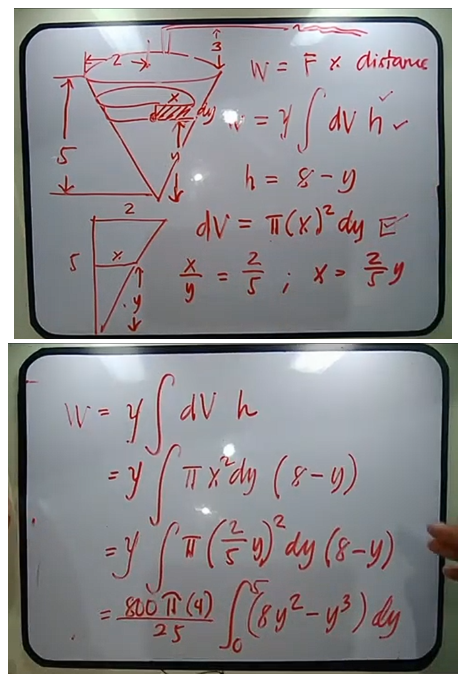 3
2
W = F x distance
x
dy
W = γ ∫ dV h
5
y
h = 8 - y
2
dV = π(x)² dy
5
x
y
x/y = 2/5 ; x = 2/5 y
W = γ ∫ dV h
= γ ∫ πx² dy (8 - y)
= γ ∫ π(2/5 y)² dy (8 - y)
= 800π(4)/25 ∫₀⁵ (8y² - y³) dy